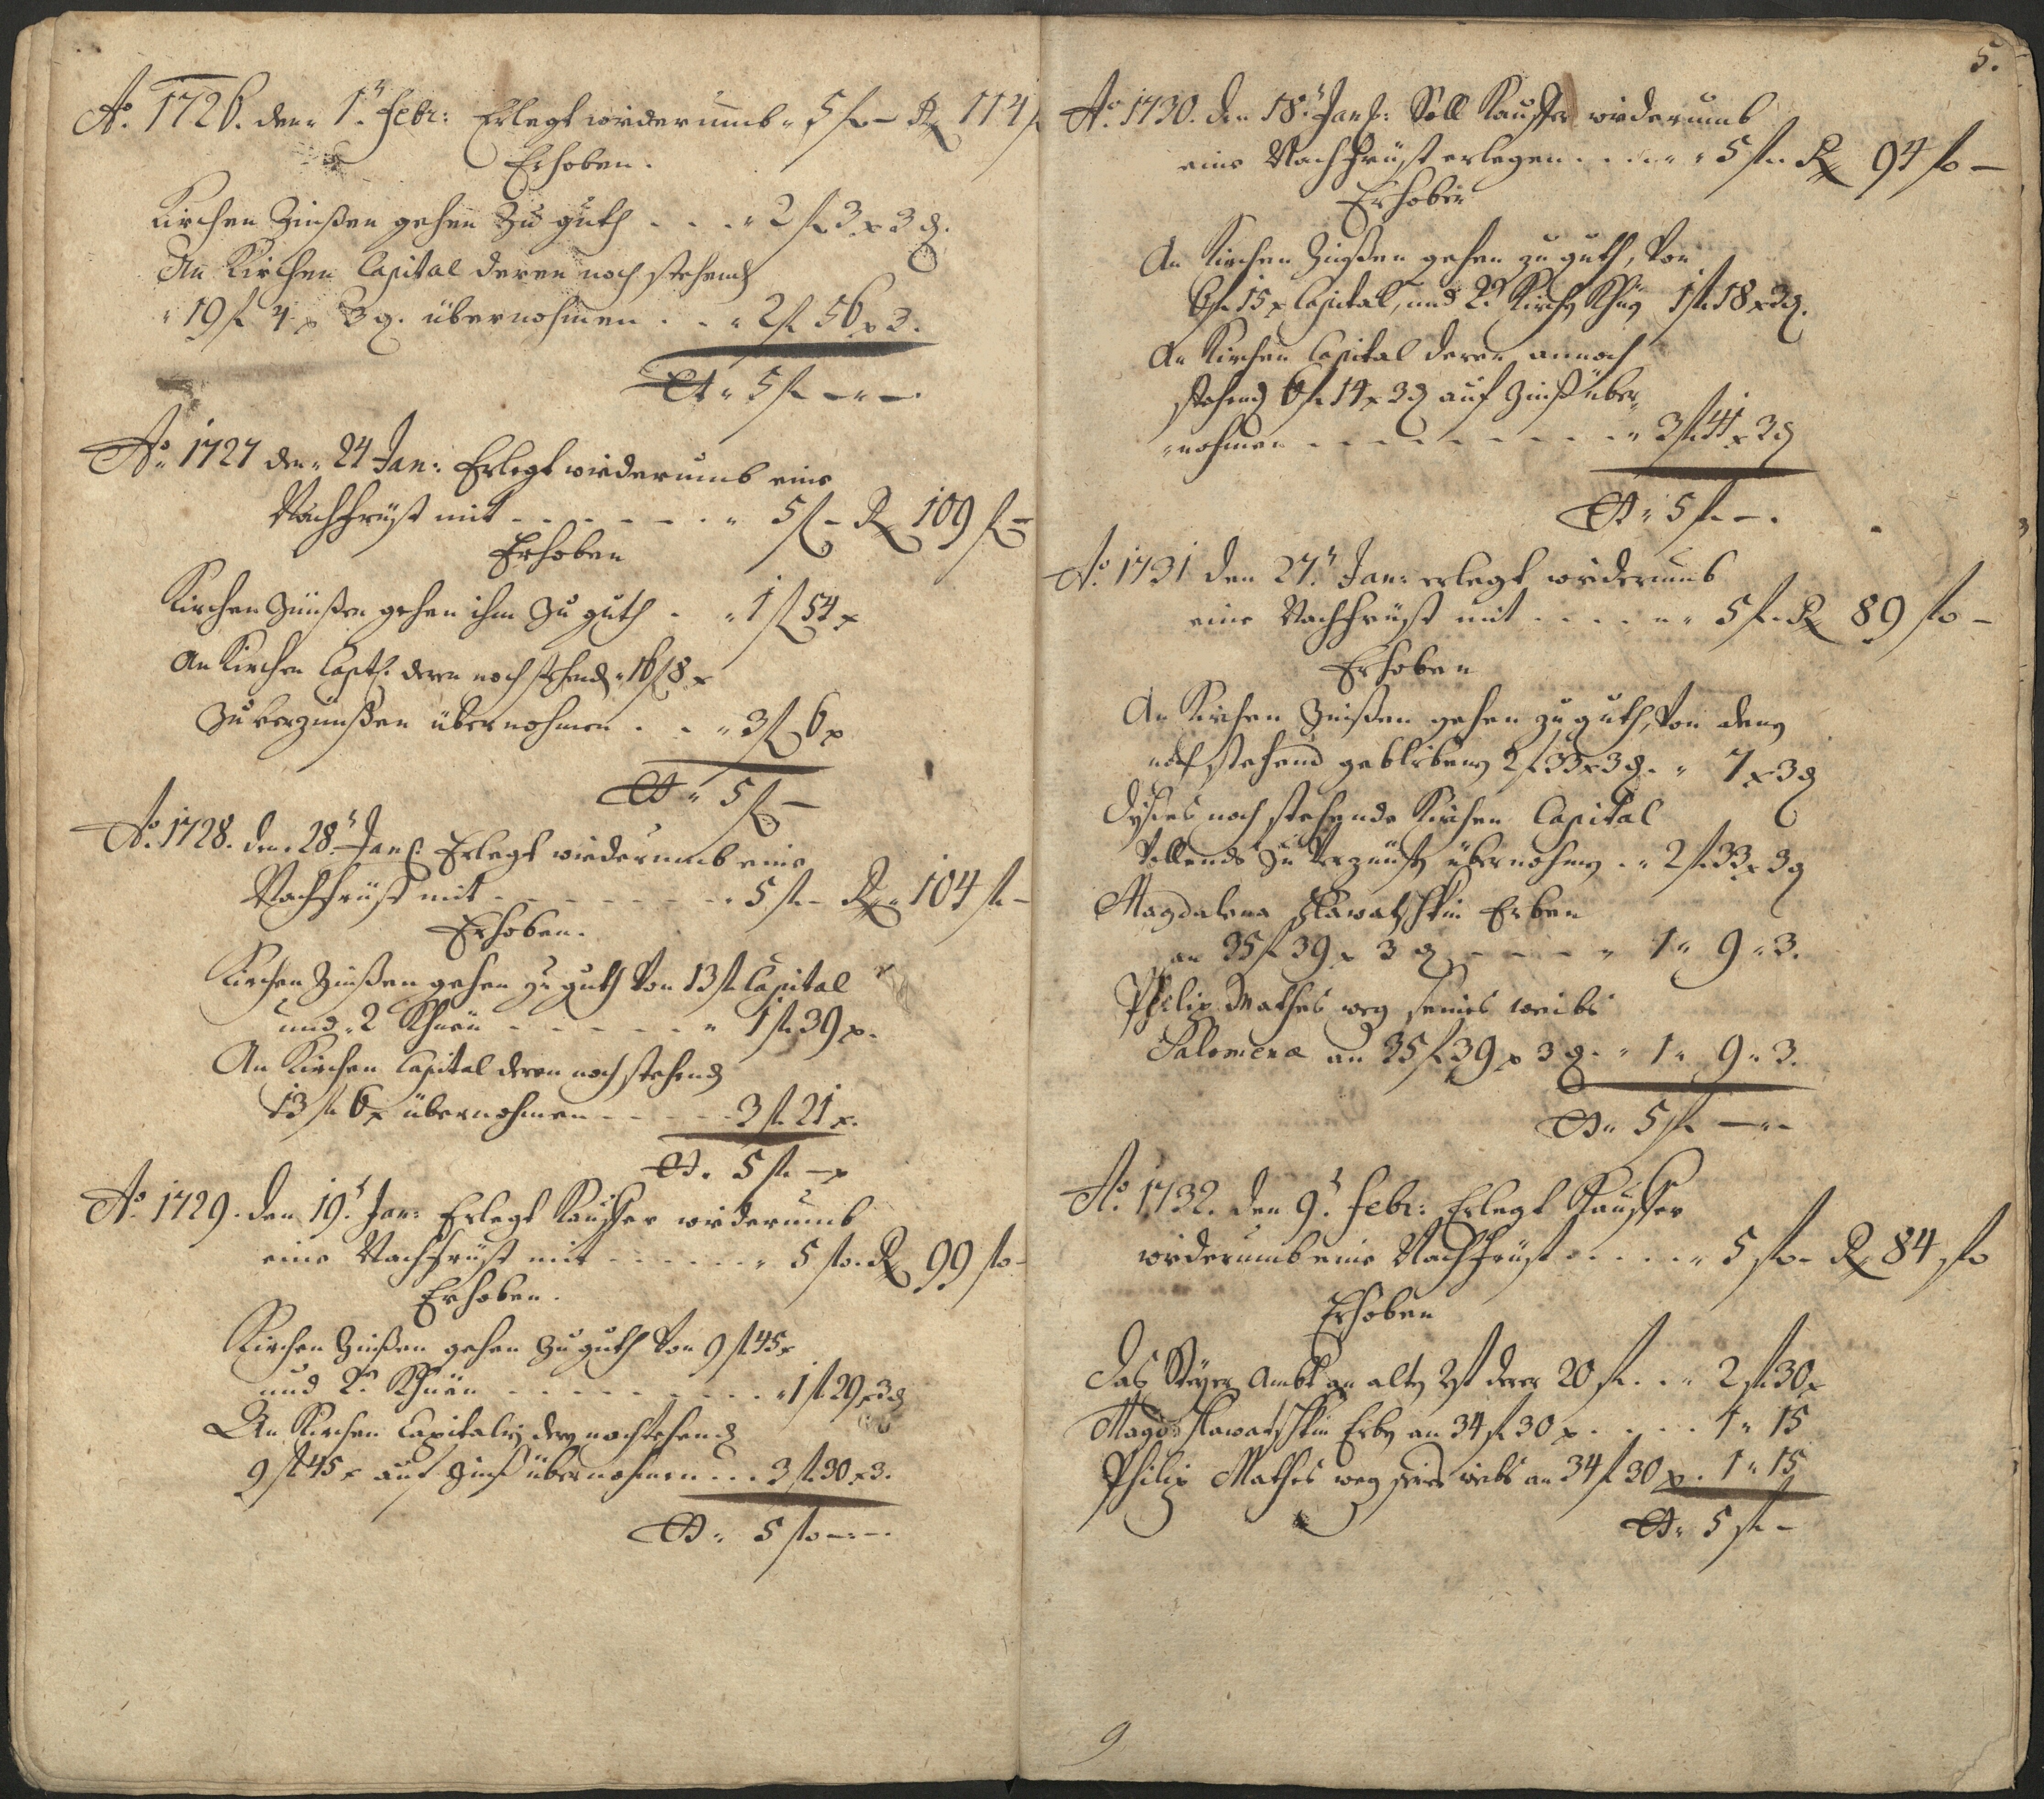 Ao. 1726. den 1t. Febr: Erlegt widerumb " 5 f – R 114 f
Erhoben.
Kirchen Zinßen gehen Zu guth . . . " 2 f 3 x 3 d.
An Kirchen Capital deren noch stehend
" 19 f 4 x 3 d. übernohmen . . " 2 f 56 x 3.
" 5 f – " –.
Ao. 1727 den " 24 Jan: Erlegt widerumb eine
Nachfrüst mit . . . . . . " 5 f – R 109 f –
Erhoben
Kirchen Zünßen gehen ihm Zu guth . " 1 f 54 x
An Kirchen Captl. deren noch stehend " 16 f 8 x
Zu verzünßen übernohmen . . " 3 f 6 x
" 5 f –
Ao. 1728. den 28t. Jan: Erlegt wiederumb eine
Nachfrüst mit . . . . . . . 5 f – R 104 f –
Erhoben.
Kirchen Zinßen gehen zu guth Von 13 f Capital
und " 2 Khüen . . . . . . " 1 f 39 x.
An Kirchen Capital deren noch stehend
13 f 6 x übernohmen . . . . 3 f 21 x.
5 f – x
Ao. 1729. den 19t. Jan: Erlegt Kauffer widerumb
eine Nachfrüst mit . . . . . . " 5 fo. R 99 fo –
Erhoben.
Kirchen Zinßen gehen Zu guth Von 9 f 45 x
und 2. Khüen . . . . . . . . . " 1 f 29 x 3 d
An Kirchen Capitalien deren noch stehend
9 f 45 x auf Zinß übernohmen . . . 3 f 30 x 3.
" 5 fo – " –.
5.
Ao. 1730. den 18t. Jan: Soll Kauffer widerumb
eine Nachfrüst erlegen . . . . " 5 f. R 94 fo –
Erhoben
An Kirchen Zinßen gehen zu guth, Von
6 f 15 x Capital, und 2. Kirchen Khüe 1 f 18 x 3 d.
An Kirchen Capital deren annoch
stehend 6 f 14 x 3 d auf Zinß über-
"nohmen . . . . . . . . . " 3 f 41 x 3 d
" 5 f – .
Ao. 1731 den 27t. Jan: erlegt widerumb
eine Nachfrüst mit . . . . " " 5 f. R 89 fo –
Erhoben
An Kirchen Zinßen gehen zu guth, Von denen
noch stehend geblibenen 2 f 33 x 3 d. " 7 x 3 d
Dises noch stehende Kirchen Capital
Vollends zu Verzünsen übernohmen . " 2 f 33 x 3 d
Magdalena Slawatschkin Erben
an 35 f 39 x 3 d – – – – " 1 " 9 " 3.
Philip Mathes weg seines weibs
Salomena an 35 f 39 x 3 d. " 1 " 9 " 3.
" 5 f – " –
Ao. 1732. den 9t. Febr: Erlegt Kauffer
widerumb eine Nachfrüst . . . . . " 5 fo – R 84 fo
Erhoben
Das Steyer Ambt an alten rest derer 20 f. . " 2 f 30 x
Magd: Slawatschkin Erben an 34 f 30 x . . . . 1 " 15
Philip Mathes weg seines weibs an 34 f 30 x. 1 " 15
" 5 f –
9